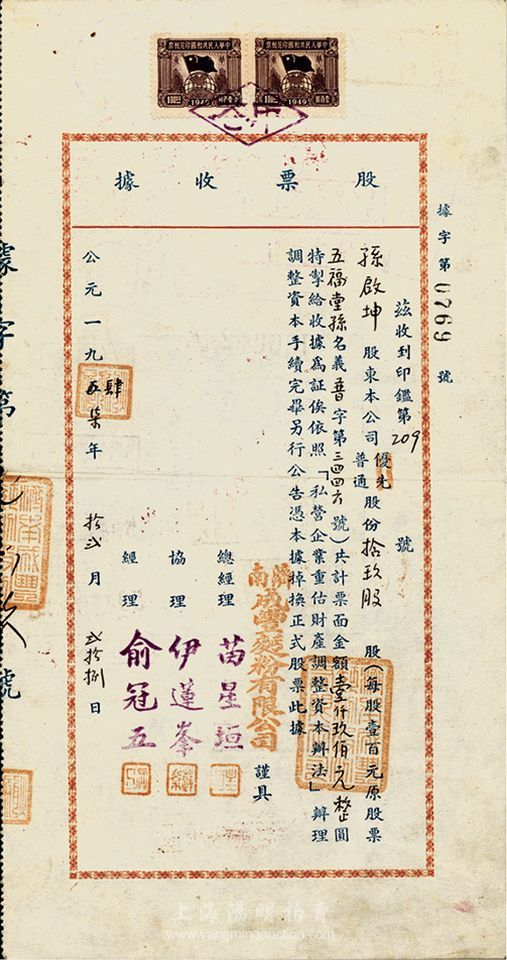 中華人民共和國印花稅票
1949
中華人民共和國印花稅票
1949
股票收據
據字第0769號
茲收到印鑑第209號
孫啟坤股東本公司優先普通股份拾玖股股(每股壹百元原股票
五福堂孫名義普字第三四四六號)共計票面金額壹仟玖佰元整圓
特掣給收據為証俟依照「私營企業重估財產調整資本辦法」辦理
調整資本手續完畢另行公告憑本據掉換正式股票此據
濟南成豐麵粉有限公司
謹具
總經理苗星垣
協理伊蓮峯
經理俞冠五
公元一九五肆年拾弍月弍拾捌日
據字第
號
上海陽明拍賣
www.yangmingauction.com